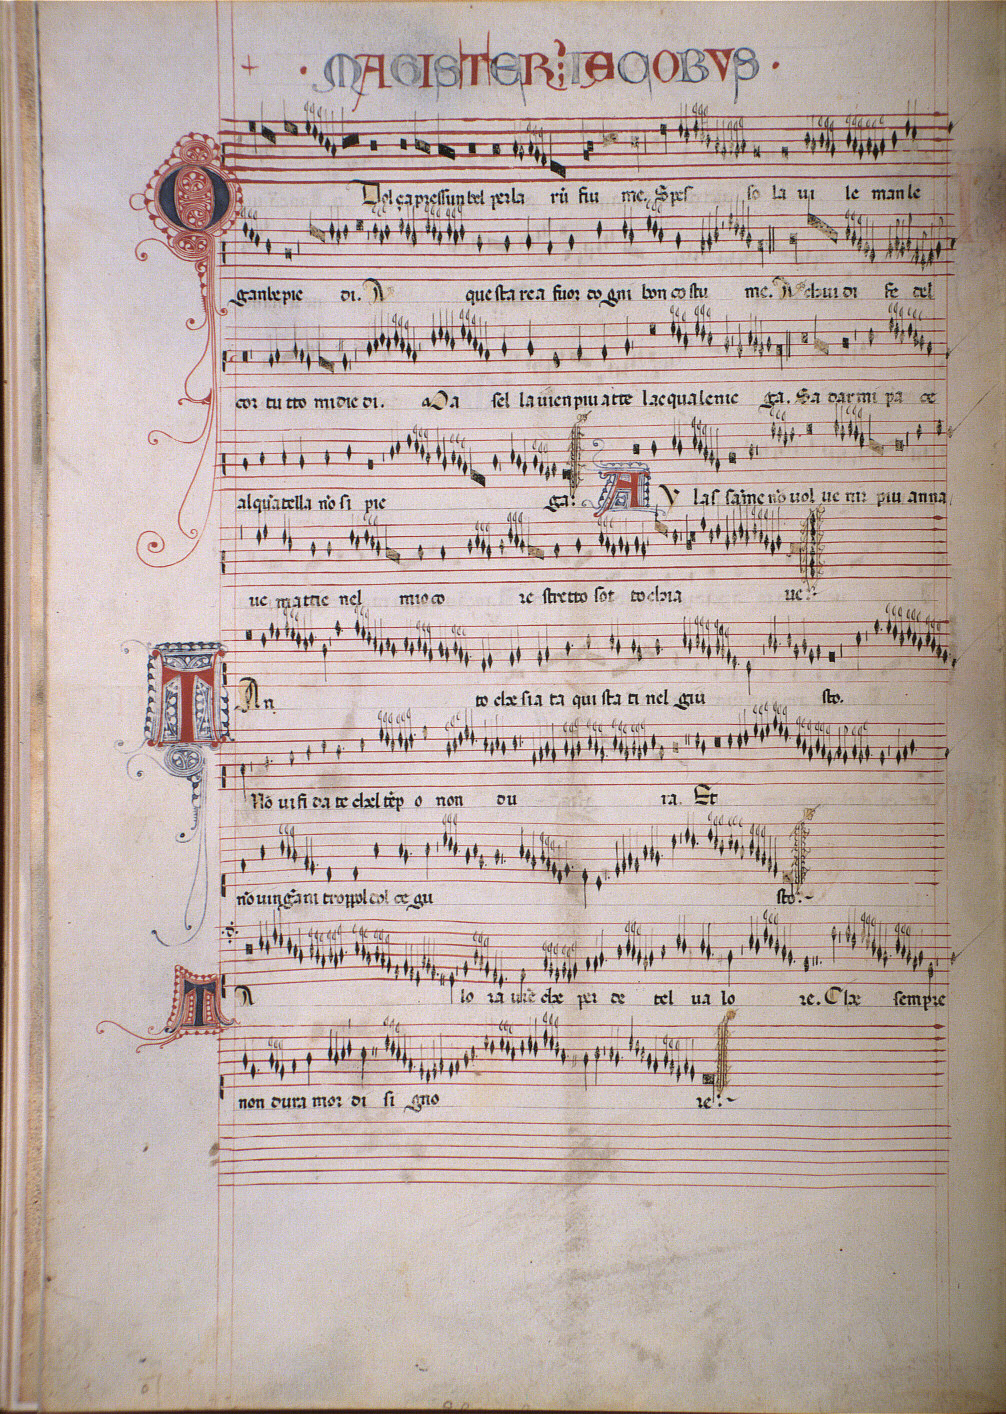 MAGISTER: IACOBVS
O Dolce apressun bel perla rū fiu me. Spes so la ui le man le
gambe pie di. A questa rea fuor dogni bon costu me. A chui di fe del
cor tutto mi die di. Ma sel la uien piu atte la equale nie ga. Sa dar mi pa ce
alquātella nō si pie ga. A y las same nō uol ue nir piu anna
ue mattie nel mio co re stretto sot to chia ue.
T An to che sia ta qui sta ti nel giu sto.
Nō ui fi da te chel tēp o non du ra. Et
nō uingāni troppol dol ce gu sto.
A lo ra che per de del ua lo re. Che sempre
non dura mor di si gno re.